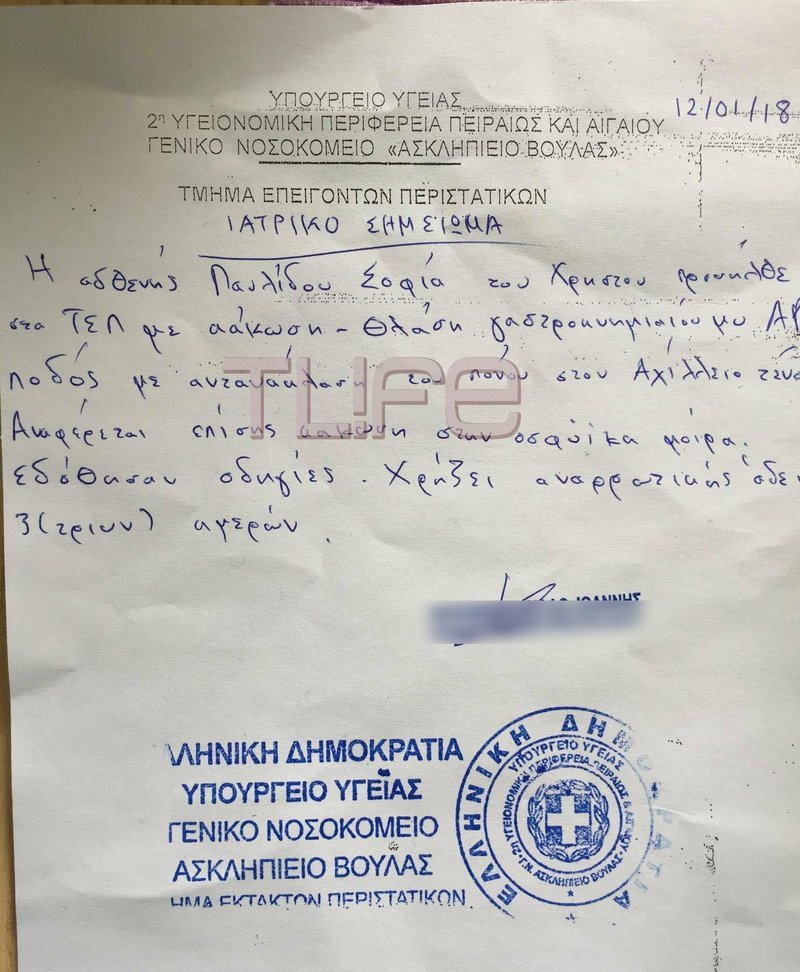 ΥΠΟΥΡΓΕΙΟ ΥΓΕΙΑΣ
12/01/18
2η ΥΓΕΙΟΝΟΜΙΚΗ ΠΕΡΙΦΕΡΕΙΑ ΠΕΙΡΑΙΩΣ ΚΑΙ ΑΙΓΑΙΟΥ
ΓΕΝΙΚΟ ΝΟΣΟΚΟΜΕΙΟ «ΑΣΚΛΗΠΙΕΙΟ ΒΟΥΛΑΣ»
ΤΜΗΜΑ ΕΠΕΙΓΟΝΤΩΝ ΠΕΡΙΣΤΑΤΙΚΩΝ
ΙΑΤΡΙΚΟ ΣΗΜΕΙΩΜΑ
Η ασθενής Παυλίδου Σοφία του Χρηστου προσήλθε
στα ΤΕΠ με κάκωση - θλάση γαστροκνημιαίου μυ ΑΡ
ποδός με αντανάκλαση του πόνου στον Αχίλλειο τένο
Αναφέρεται επίσης κάκωση στην οσφυϊκα μοίρα.
Εδόθησαν οδηγίες. Χρήζει αναρρωτικής άδει
3 (τριων) ημερών
TLIFE
ΙΩΑΝΝΗΣ
ΛΗΝΙΚΗ ΔΗΜΟΚΡΑΤΙΑ
ΥΠΟΥΡΓΕΙΟ ΥΓΕΪΑΣ
ΓΕΝΙΚΟ ΝΟΣΟΚΟΜΕΙΟ
ΑΣΚΛΗΠΙΕΙΟ ΒΟΥΛΑΣ
ΗΜΑ ΕΚΤΑΚΤΩΝ ΠΕΡΙΣΤΑΤΙΚΩΝ
ΕΛΛΗΝΙΚΗ ΔΗΜΟΚΡΑΤΙΑ
ΥΠΟΥΡΓΕΙΟ ΥΓΕΙΑΣ
2η ΥΓΕΙΟΝΟΜΙΚΗ ΠΕΡΙΦΕΡΕΙΑ ΠΕΙΡΑΙΩΣ & ΑΙΓΑΙΟΥ
Γ.Ν. ΑΣΚΛΗΠΙΕΙΟ ΒΟΥΛΑΣ